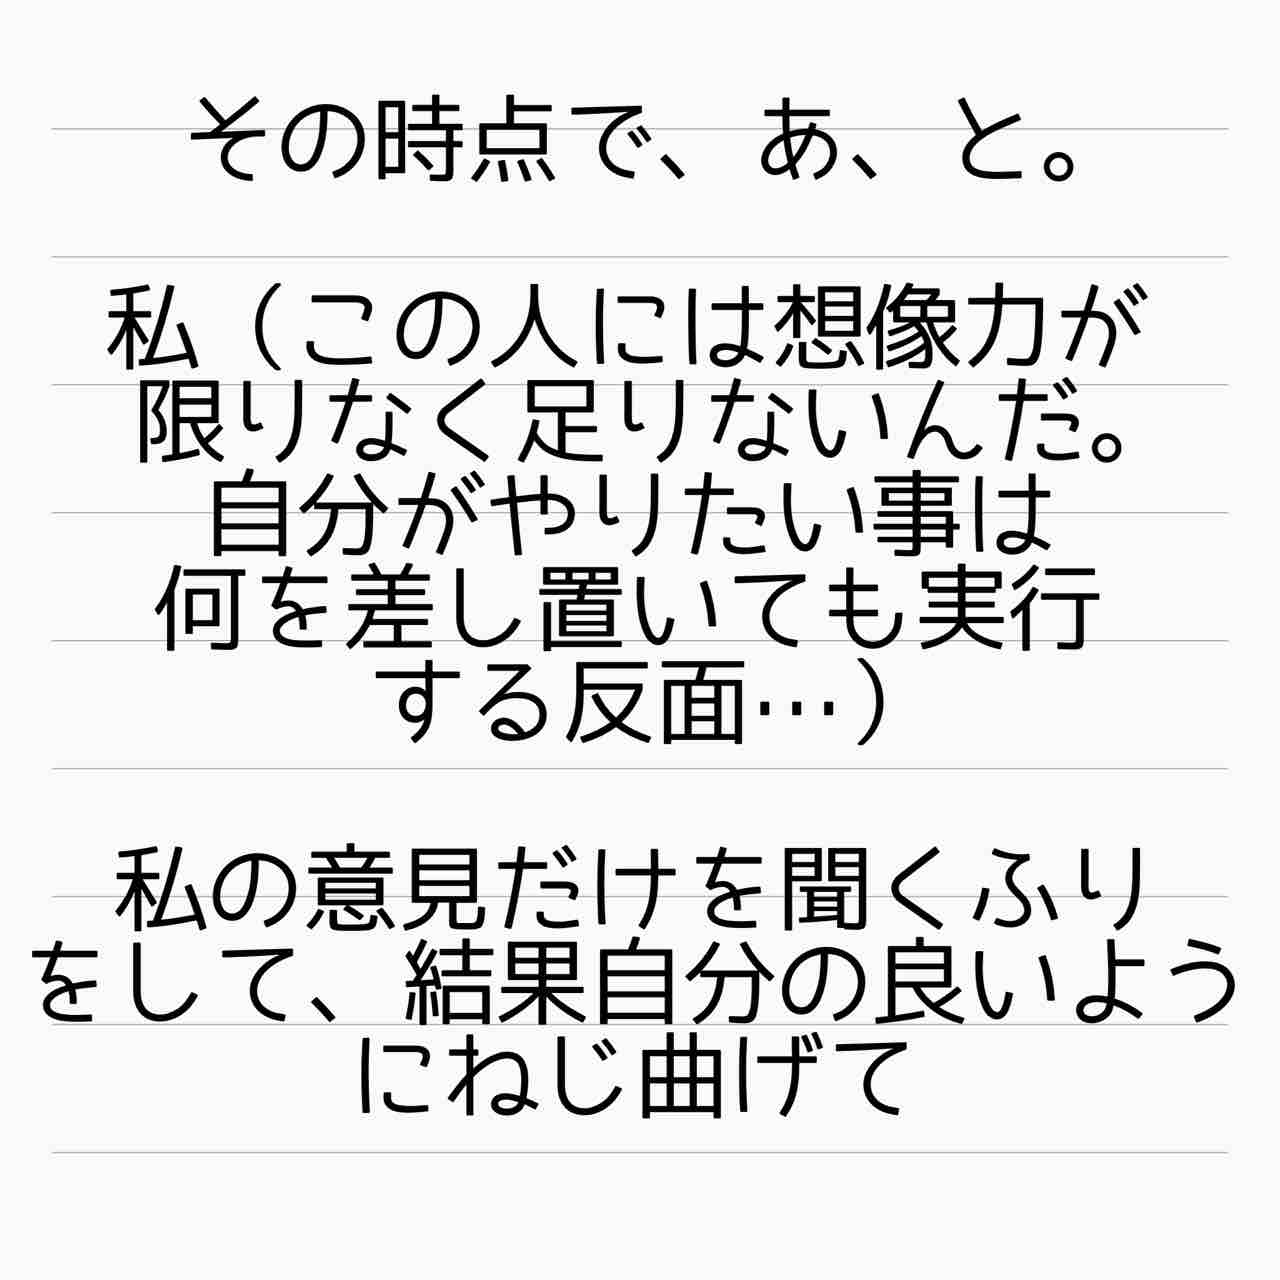 その時点で、あ、と。
私（この人には想像力が
限りなく足りないんだ。
自分がやりたい事は
何を差し置いても実行
する反面…）
私の意見だけを聞くふり
をして、結果自分の良いよう
にねじ曲げて